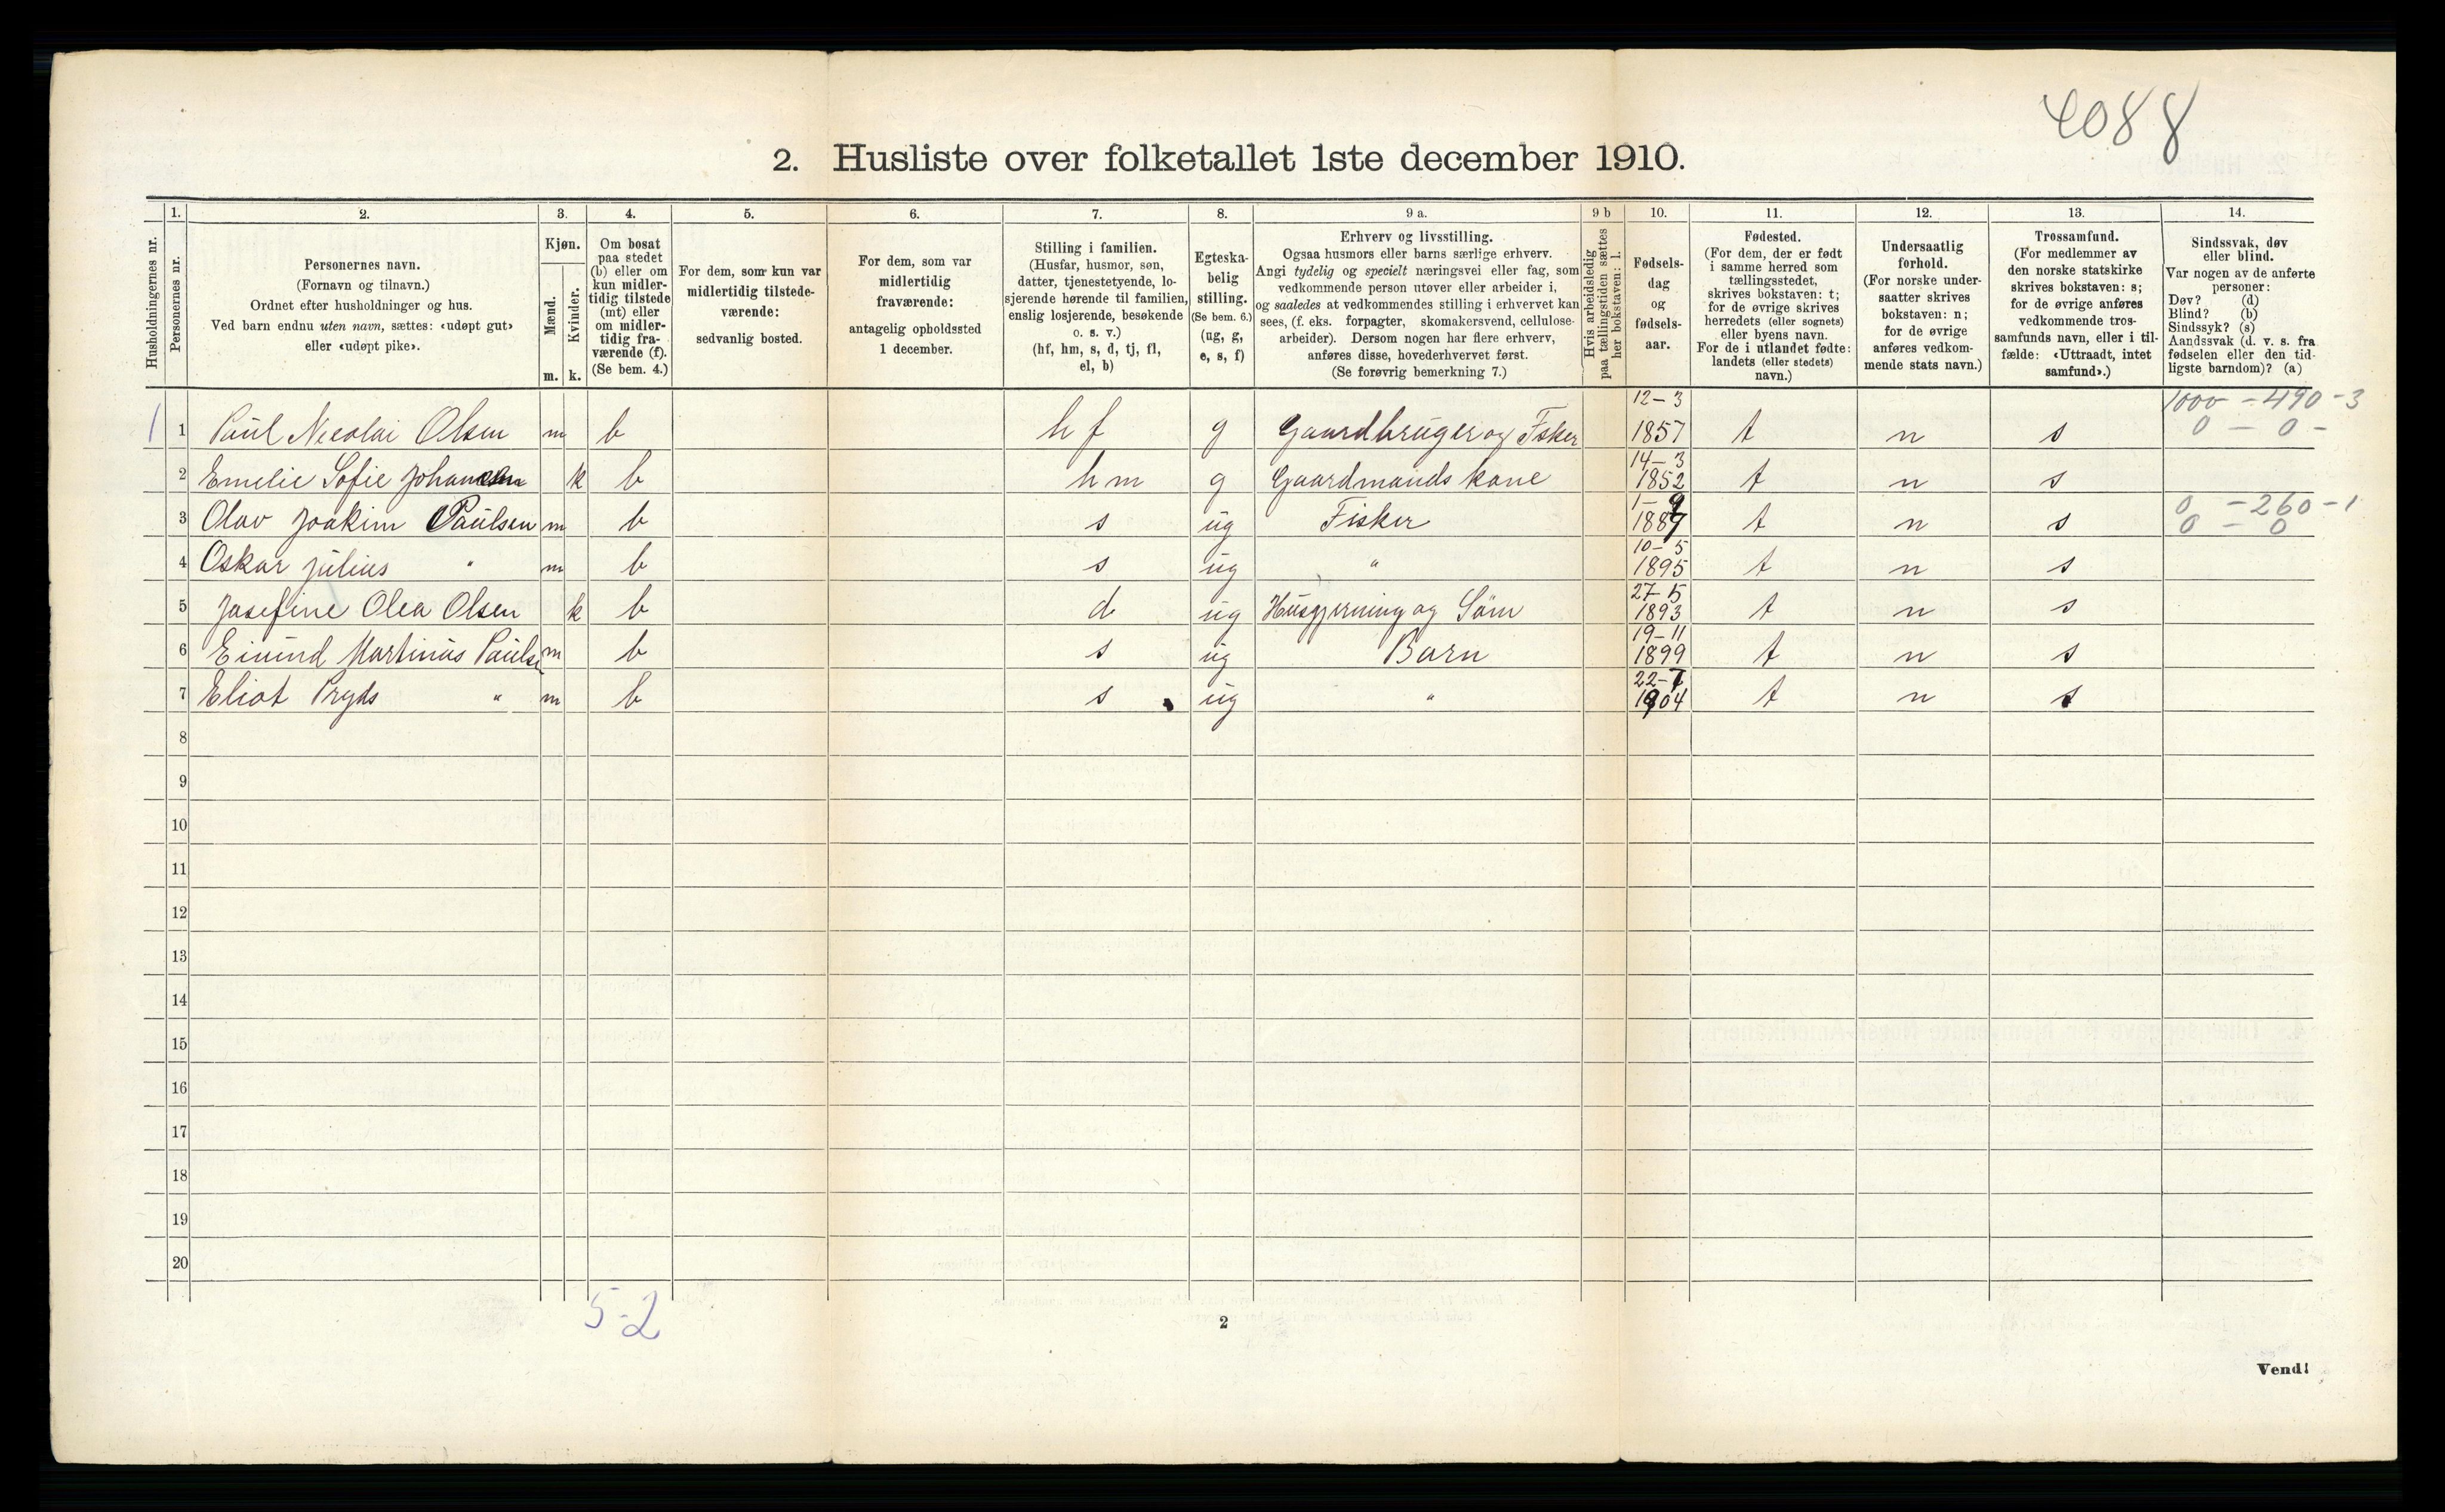 4088
2. Husliste over folketallet 1ste december 1910.
Husholdningernes nr.
1. Personernes nr.
2. Personernes navn.
(Fornavn og tilnavn.)
Ordnet efter husholdninger og hus.
Ved barn endnu uten navn, sættes: «udøpt gut»
eller «udøpt pike».
3. Kjøn.
Mænd. m.
Kvinder. k.
4. Om bosat
paa stedet
(b) eller om
kun midler-
tidig tilstede
(mt) eller
om midler-
tidig fra-
værende (f).
(Se bem. 4.)
5. For dem, som kun var
midlertidig tilstede-
værende:
sedvanlig bosted.
6. For dem, som var
midlertidig
fraværende:
antagelig opholdssted
1 december.
7. Stilling i familien.
(Husfar, husmor, søn,
datter, tjenestetyende, lo-
sjerende hørende til familien,
enslig losjerende, besøkende
o. s. v.)
(hf, hm, s, d, tj, fl,
el, b)
8. Egteska-
belig
stilling.
(Se bem. 6.)
(ug, g,
e, s, f)
9 a. Erhverv og livsstilling.
Ogsaa husmors eller barns særlige erhverv.
Angi tydelig og specielt næringsvei eller fag, som
vedkommende person utøver eller arbeider i,
og saaledes at vedkommendes stilling i erhvervet kan
sees, (f. eks. forpagter, skomakersvend, cellulose-
arbeider). Dersom nogen har flere erhverv,
anføres disse, hovederhvervet først.
(Se forøvrig bemerkning 7.)
9 b Hvis arbeidsledig
paa tællingstiden sættes
her bokstaven: l.
10. Fødsels-
dag
og
fødsels-
aar.
11. Fødested.
(For dem, der er født
i samme herred som
tællingsstedet,
skrives bokstaven: t;
for de øvrige skrives
herredets (eller sognets)
eller byens navn.
For de i utlandet fødte:
landets (eller stedets)
navn.)
12. Undersaatlig
forhold.
(For norske under-
saatter skrives
bokstaven: n;
for de øvrige
anføres vedkom-
mende stats navn.)
13. Trossamfund.
(For medlemmer av
den norske statskirke
skrives bokstaven: s;
for de øvrige anføres
vedkommende tros-
samfunds navn, eller i til-
fælde: «Uttraadt, intet
samfund».)
14. Sindssvak, døv
eller blind.
Var nogen av de anførte
personer:
Døv? (d)
Blind? (b)
Sindssyk? (s)
Aandssvak (d. v. s. fra
fødselen eller den tid-
ligste barndom)? (a)
1 1 Paul Nicolai Olsen m b hf g Gaardbruger og Fsker 12-3 1857 t n s 1000 - 490 - 3 0 - 0 -
2 Emelie Sofie Johansen k b hm g Gaardmands kone 14-3 1852 t n s
3 Olav Joakim Paulsen m b s ug Fisker 1-9 1889 t n s 0 - 260 - 1 0 - 0
4 Oskar Julius " m b s ug " 10-5 1895 t n s
5 Josefine Olea Olsen k b d ug Husgjerning og Söm 27-5 1893 t n s
6 Eivind Martinus Paulsen m b s ug Barn 19-11 1899 t n s
7 Eliot Pryds " m b s ug " 22-7 1904 t n s
8
9
10
11
12
13
14
15
16
17
18
19
20
5-2
2
Vend!